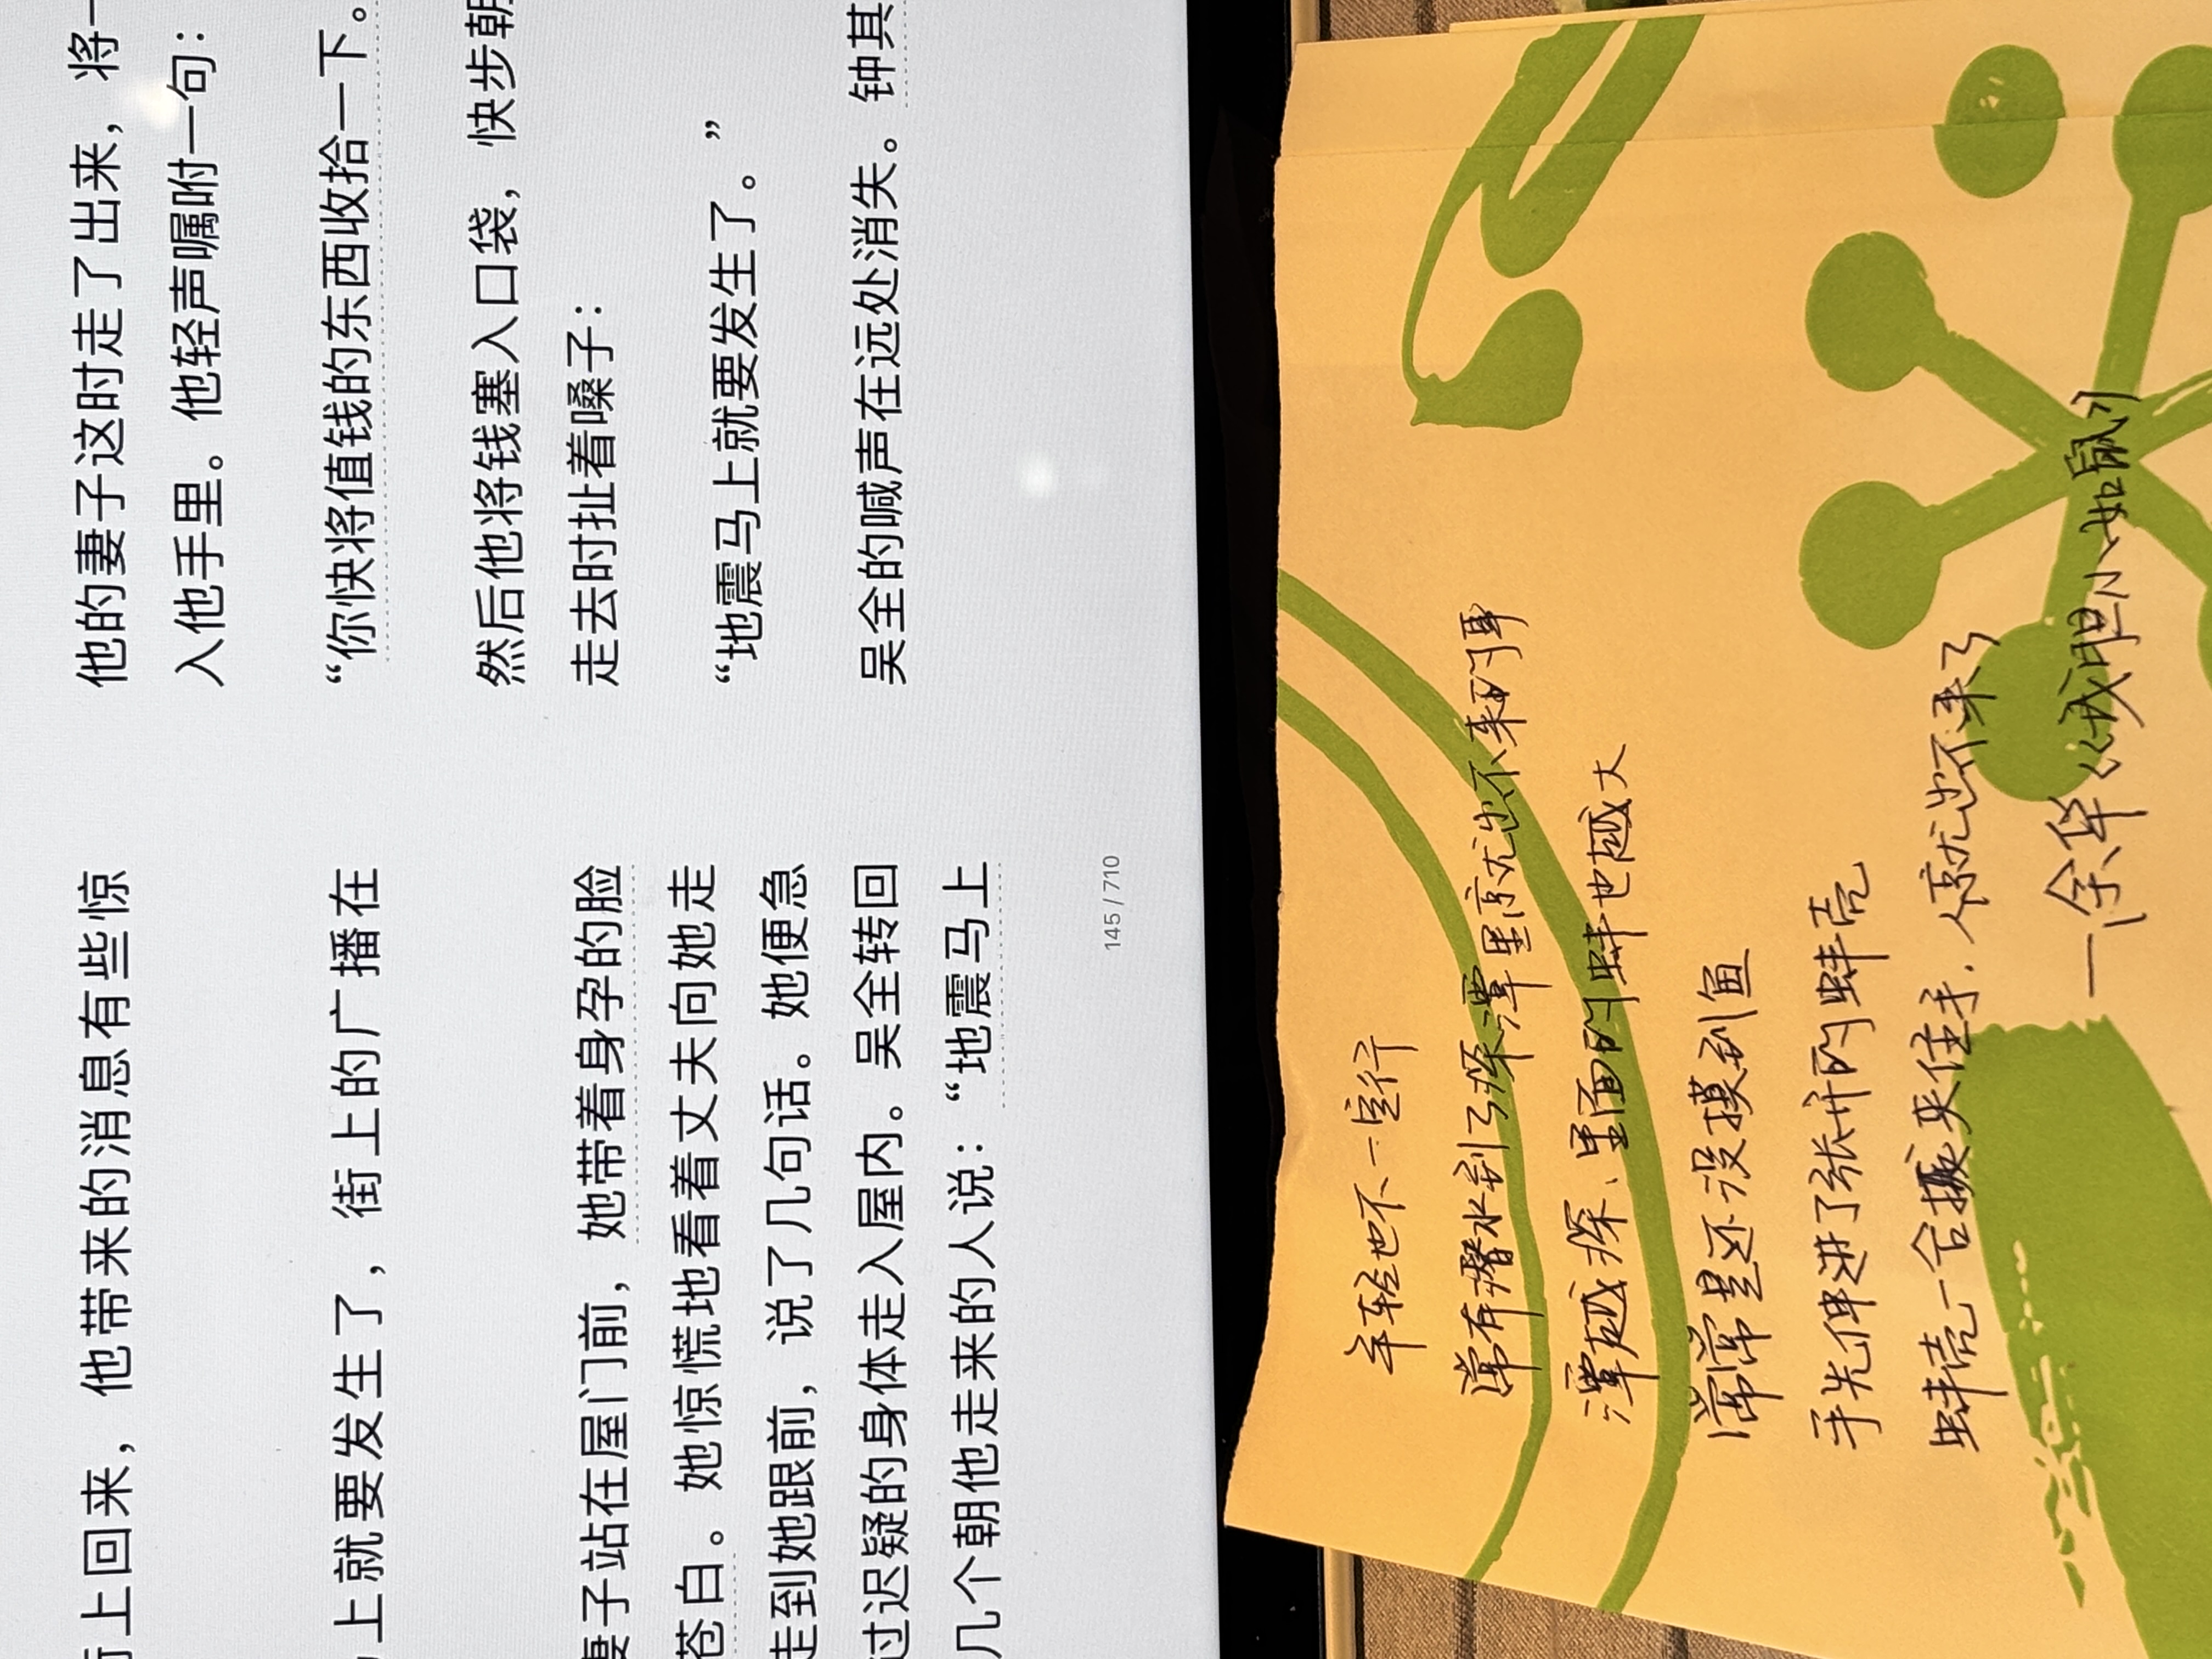 街上回来，他带来的消息有些惊
上就要发生了，街上的广播在
妻子站在屋门前，她带着身孕的脸
苍白。她惊慌地看着丈夫向她走
走到她跟前，说了几句话。她便急
过迟疑的身体走入屋内。吴全转回
几个朝他走来的人说：“地震马上
145 / 710
他的妻子这时走了出来，将一
入他手里。他轻声嘱咐一句：
“你快将值钱的东西收拾一下。
然后他将钱塞入口袋，快步朝
走去时扯着嗓子：
“地震马上就要发生了。”
吴全的喊声在远处消失。钟其
年轻也不一定行
常有潜水到了深潭里就出不来的事
潭越深、里面的蚌也越大
常常是还没摸到鱼
手先伸进了张开的蚌壳
蚌壳一合拢夹住手，人就出不来了
—余华《我胆小如鼠》